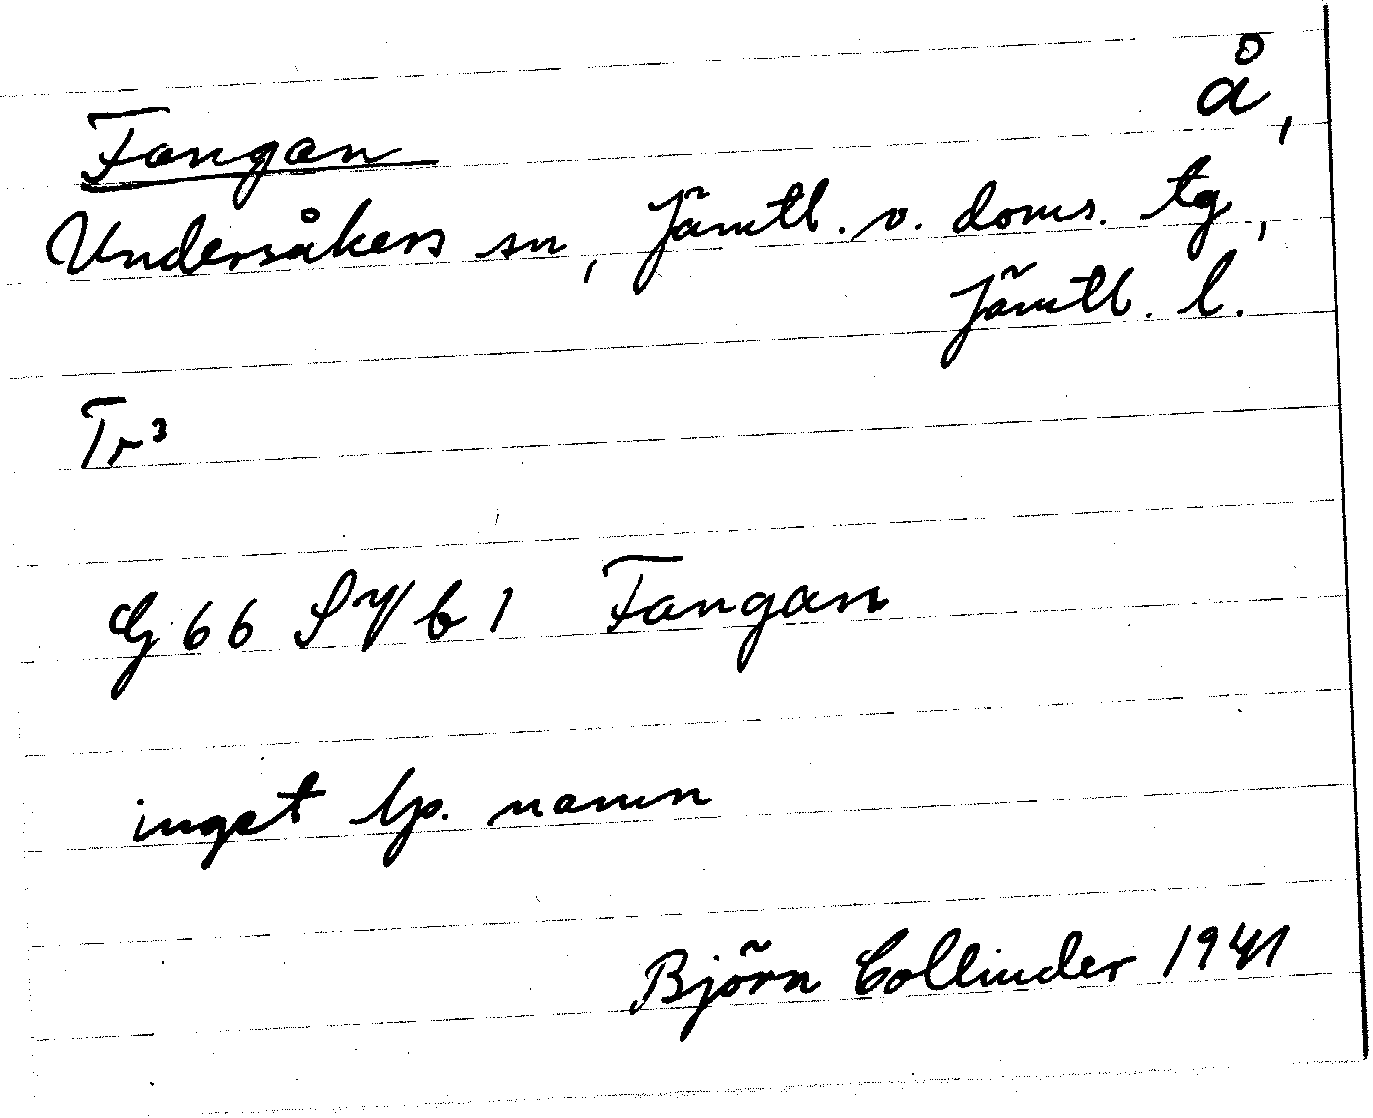 Fangan å,
Undersåkers sn, Jämtl. v. doms. tg,
Jämtl. l.
Tr³
G 66 SV b 1 Fangan
inget lp. namn
Björn Collinder 1941